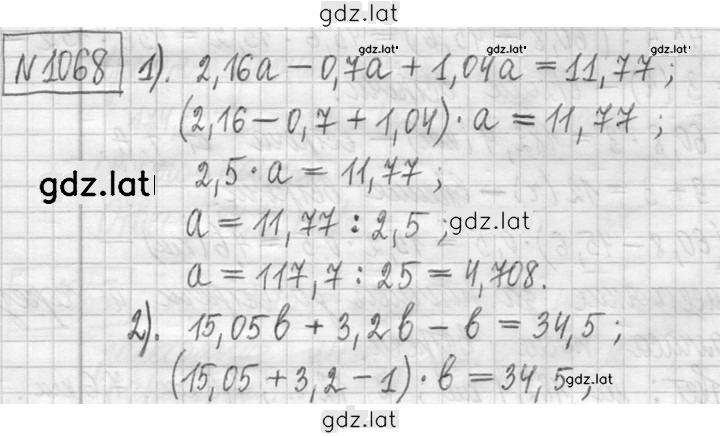 gdz.lat
№1068 1). 2,16a − 0,7a + 1,04a = 11,77;
gdz.lat gdz.lat gdz.lat
(2,16 − 0,7 + 1,04) · a = 11,77;
gdz.lat
2,5 · a = 11,77;
a = 11,77 : 2,5;
gdz.lat
a = 117,7 : 25 = 4,708.
2). 15,05в + 3,2в − в = 34,5;
(15,05 + 3,2 − 1) · в = 34,5;
gdz.lat
gdz.lat